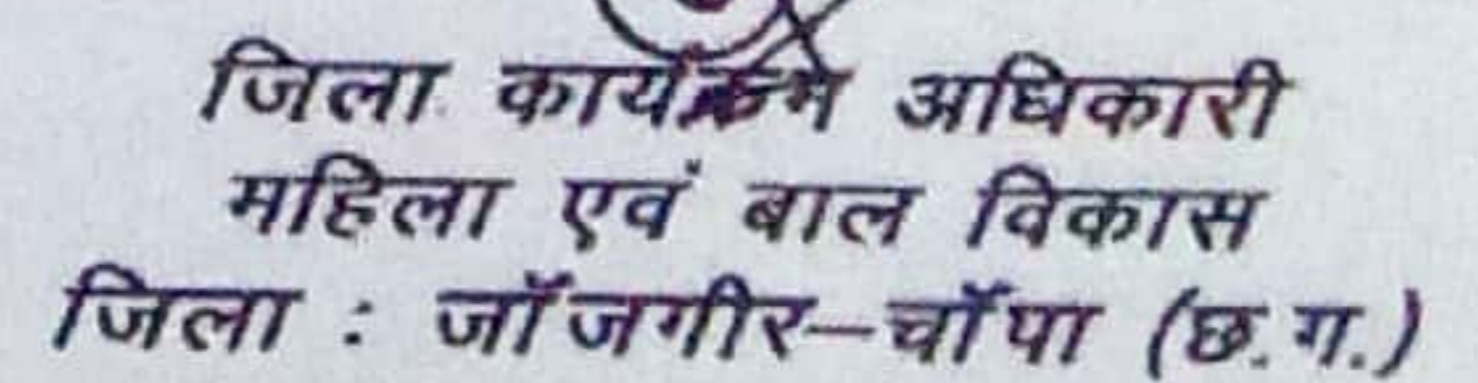 जिला कार्यक्रम अधिकारी
महिला एवं बाल विकास
जिला : जॉजगीर–चॉपा (छ.ग.)